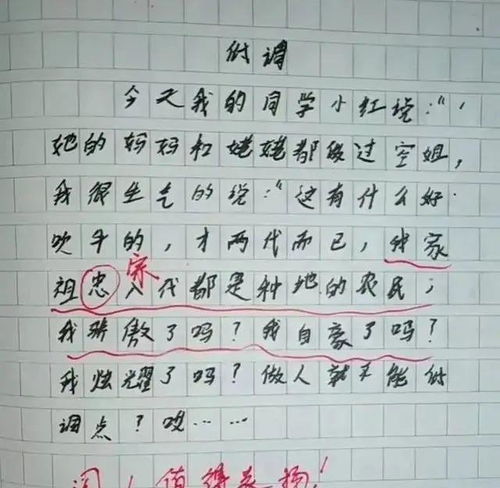 低调
今天我的同学小红说:"
她的妈妈和姥姥都做过空姐,
我很生气的说:"这有什么好
吹牛的,才两代而已,我家
宗
祖忠八代都是种地的农民;
我骄傲了吗?我自豪了吗?
我炫耀了吗?做人就不能低
调点?哎……
值得表扬!